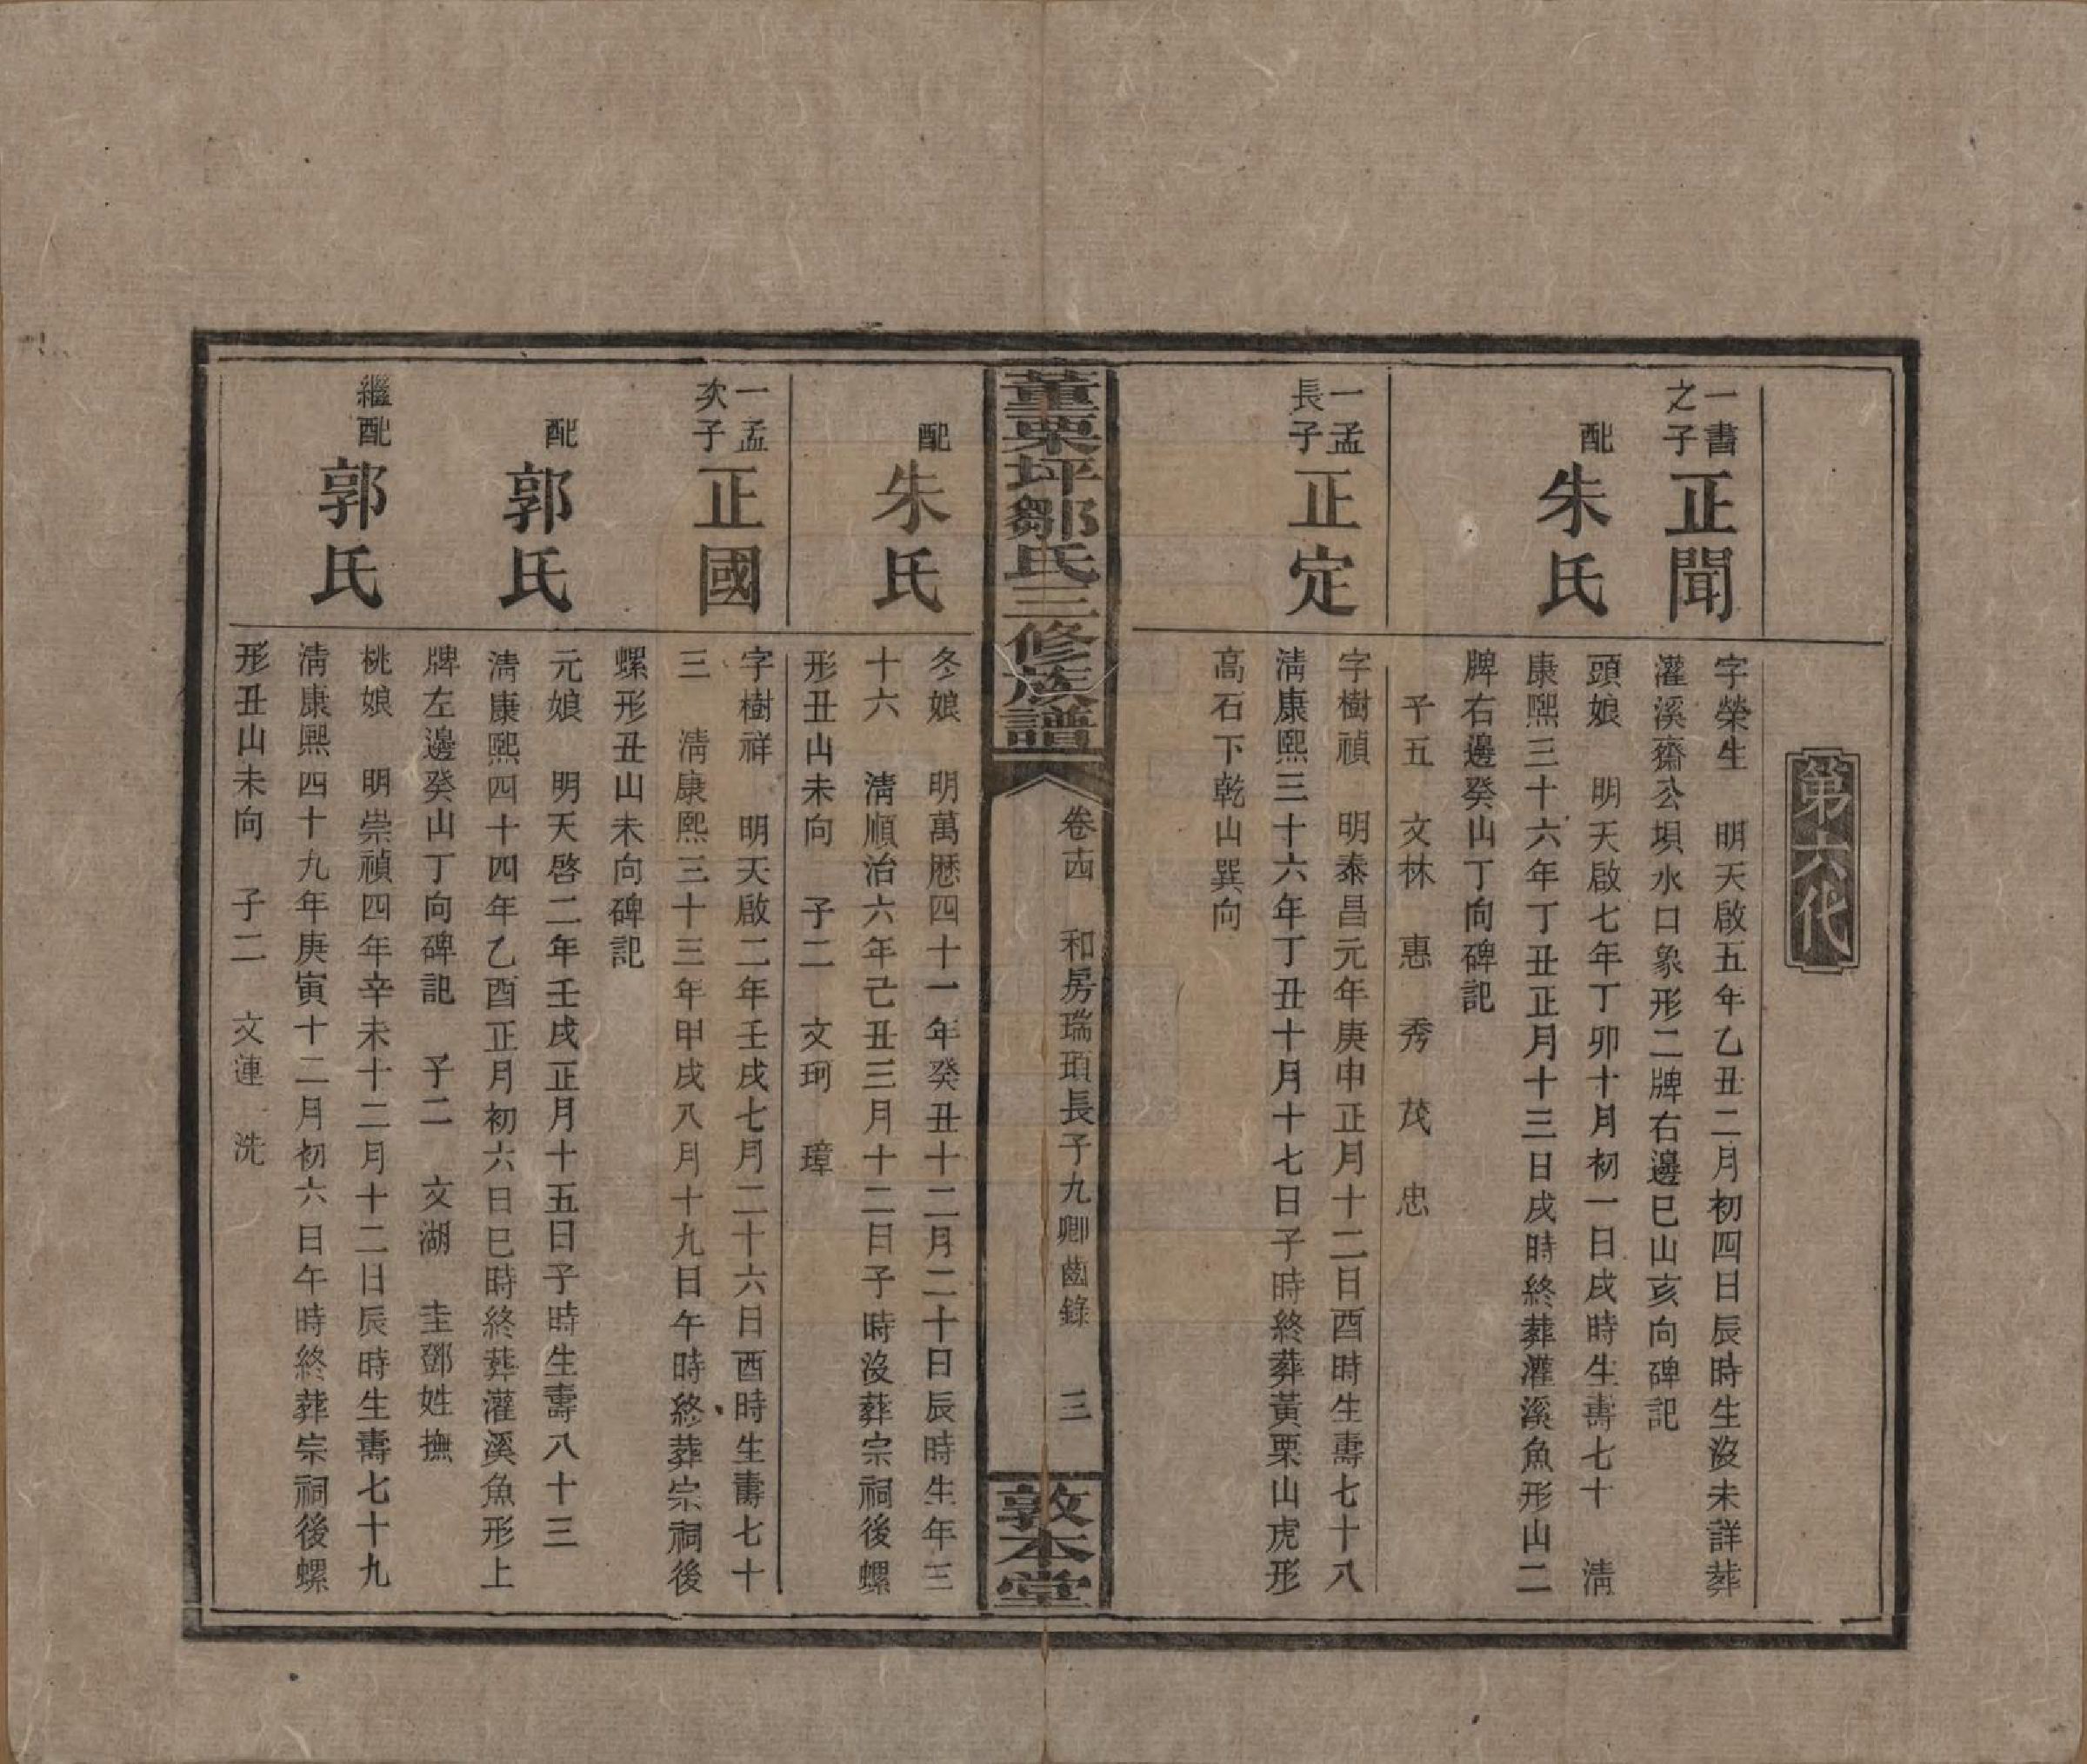 第六代
一書
之子
正聞
字榮生　明天啟五年乙丑二月初四日辰時生沒未詳葬
灌溪齋公垻水口象形二牌右邊巳山亥向碑記
配
朱氏
頭娘　明天啟七年丁卯十月初一日戌時生壽七十　清
康熙三十六年丁丑正月十三日戌時終葬灌溪魚形山二
牌右邊癸山丁向碑記
子五　文林　惠　秀　茂　忠
一孟
長子
正定
字樹禎　明泰昌元年庚申正月十二日酉時生壽七十八
清康熙三十六年丁丑十月十七日子時終葬黃栗山虎形
高石下乾山巽向
董栗坪鄒氏三修族譜
卷十四　和房瑞頊長子九卿齒錄　三
敦本堂
配
朱氏
冬娘　明萬歷四十一年癸丑十二月二十日辰時生年三
十六　清順治六年己丑三月十二日子時沒葬宗祠後螺
形丑山未向　子二　文珂　璋
一孟
次子
正國
字樹祥　明天啟二年壬戌七月二十六日酉時生壽七十
三　清康熙三十三年甲戌八月十九日午時終葬宗祠後
螺形丑山未向碑記
配
郭氏
元娘　明天啓二年壬戌正月十五日子時生壽八十三
清康熙四十四年乙酉正月初六日巳時終葬灌溪魚形上
牌左邊癸山丁向碑記　子二　文湖　圭鄧姓撫
繼配
郭氏
桃娘　明崇禎四年辛未十二月十二日辰時生壽七十九
清康熙四十九年庚寅十二月初六日午時終葬宗祠後螺
形丑山未向　子二　文蓮　洗